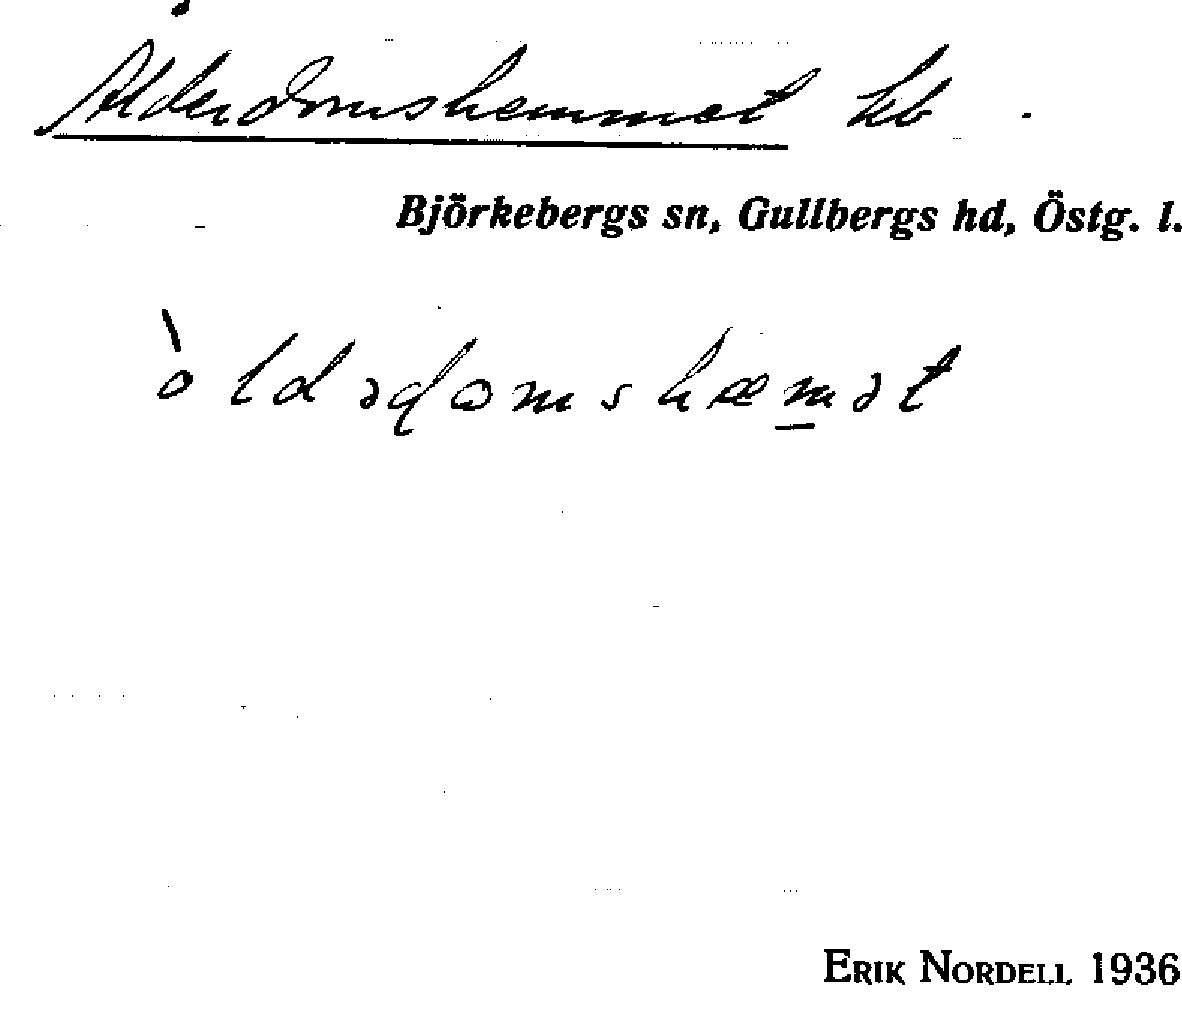 Ålderdomshemmet lb
Björkebergs sn, Gullbergs hd, Östg. l.
òldədomshæmət
ERIK NORDELL 1936